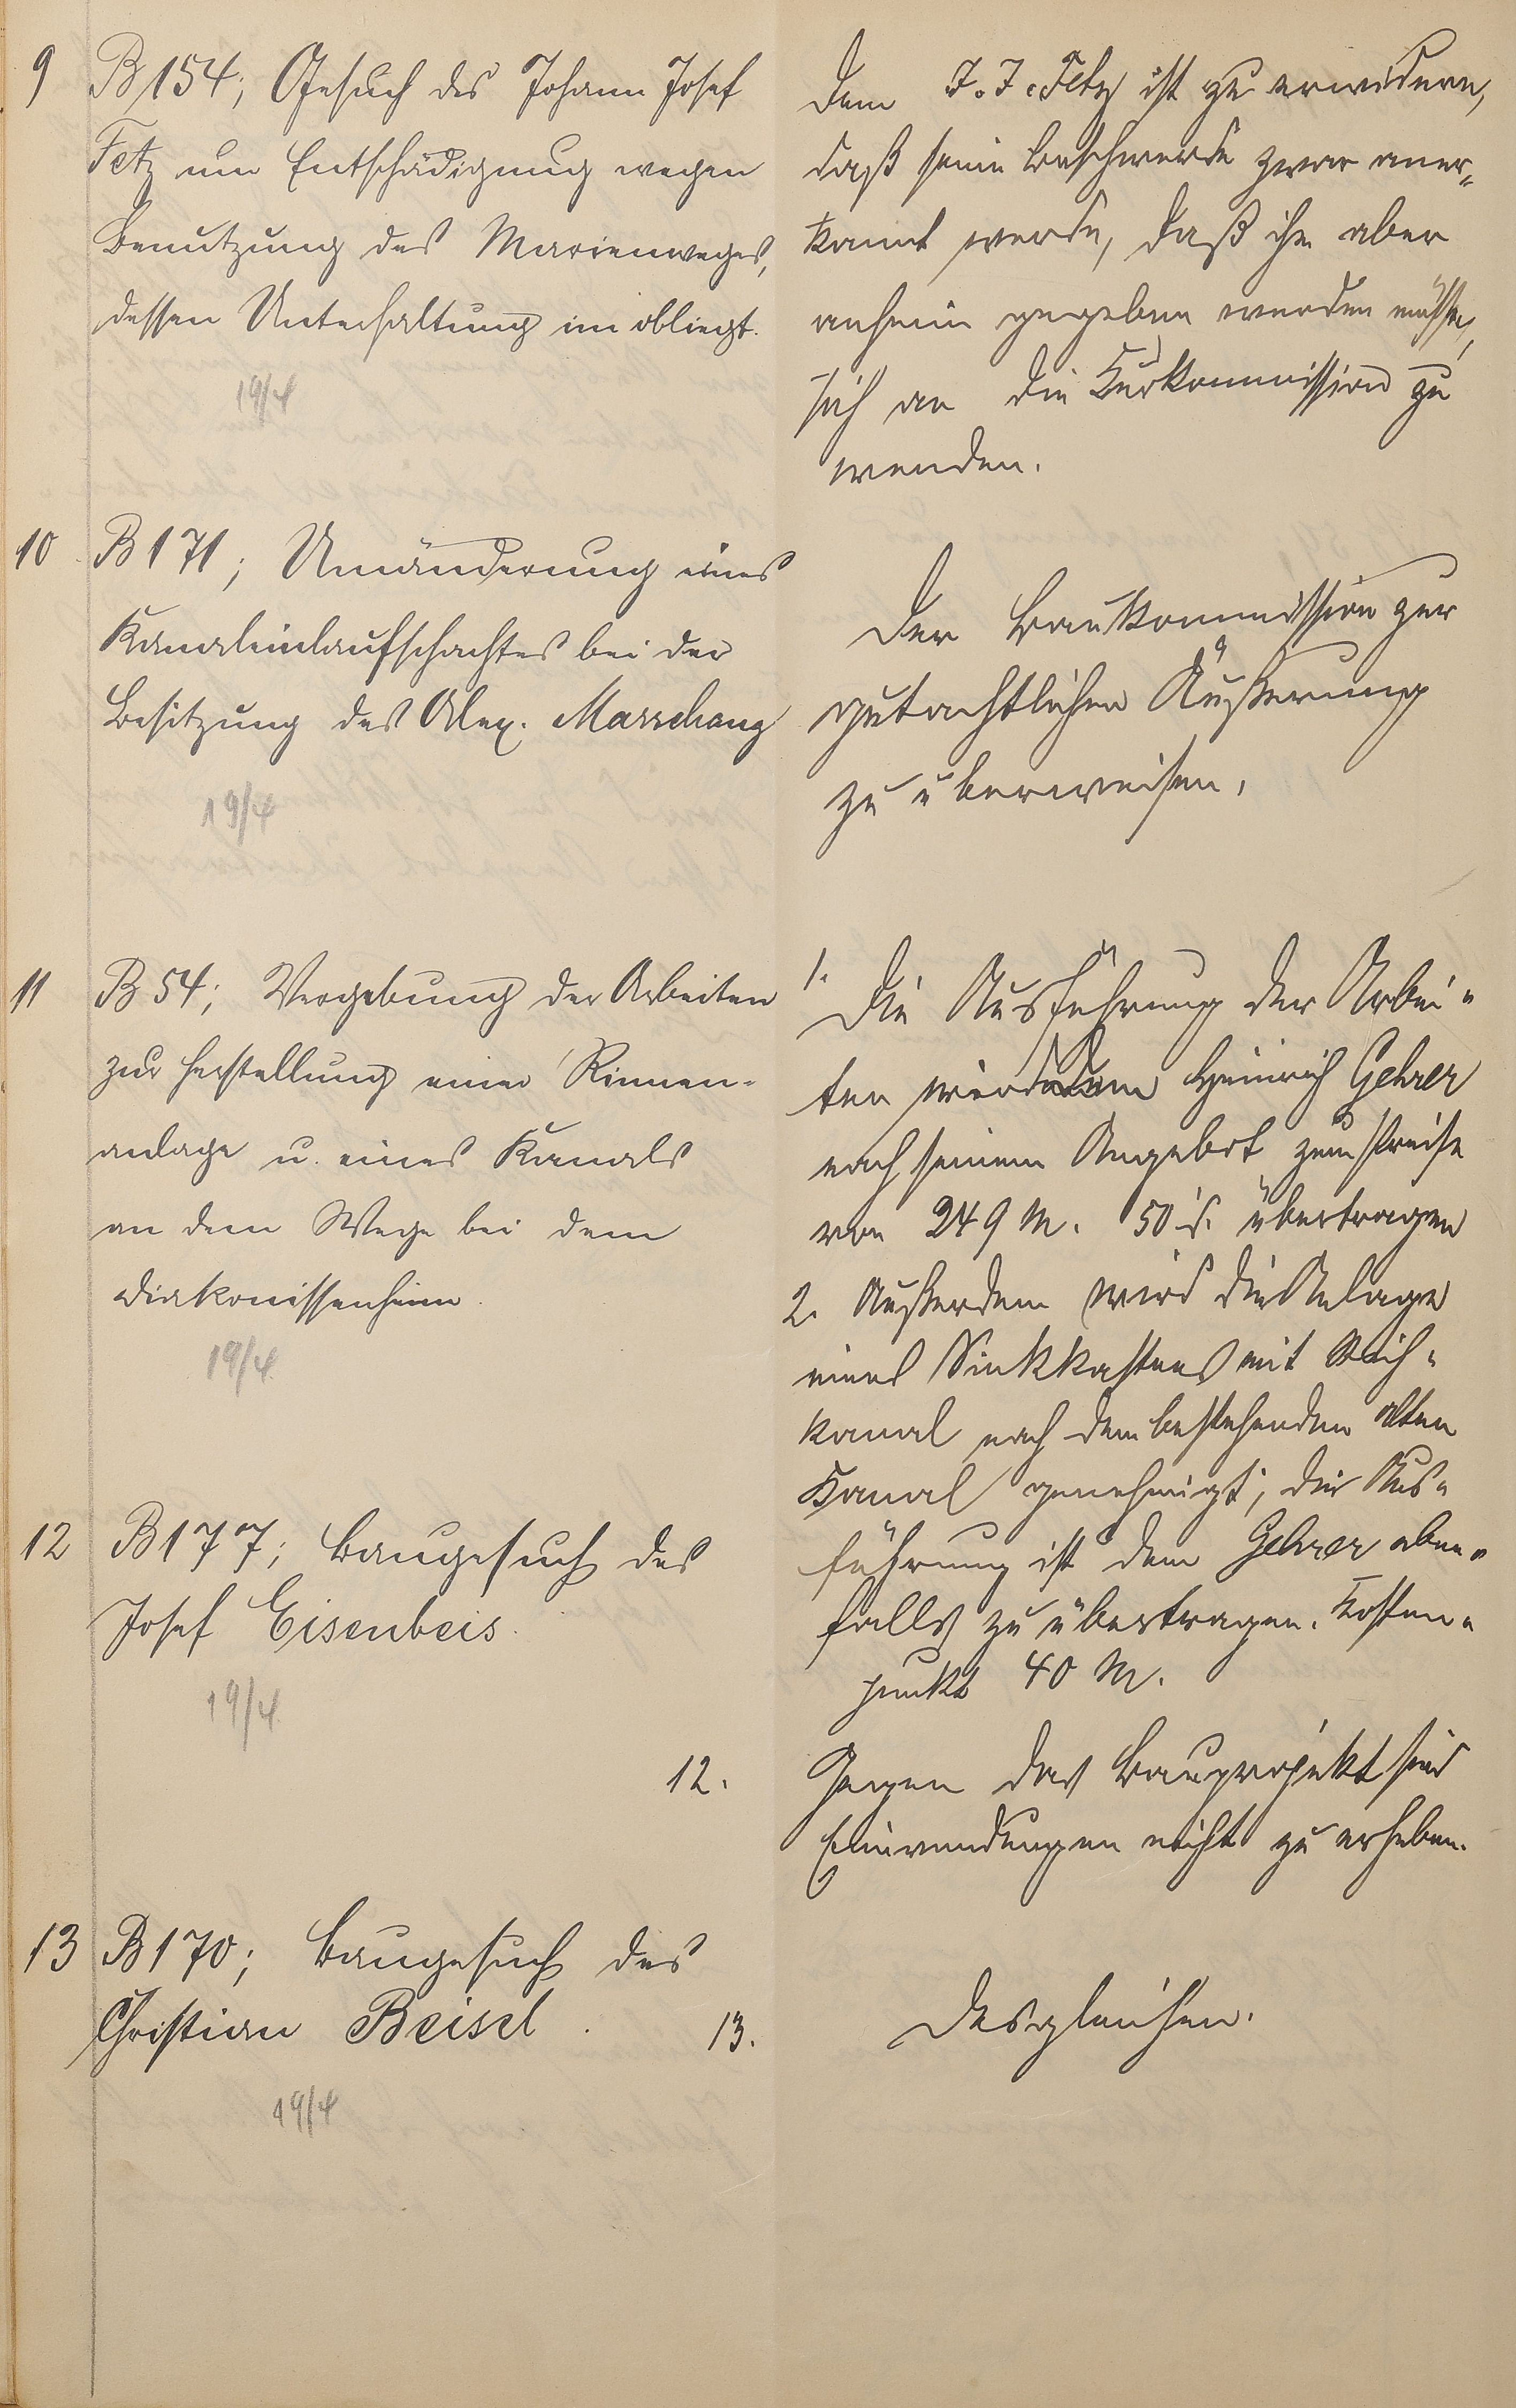 9 B 154; Gesuch des Johann Josef
Fetz um Entschädigung wegen
Benutzung des Marienweges,
dessen Unterhaltung im obliegt.
19/4
Dem J. J. Fetz ist zu erwidern,
daß seine Beschwerde zwar aner-
kannt werde, daß ihm aber
anheim gegeben werden müsse,
sich an die Kurkommission zu
wenden.
10 B 171; Umänderung eines
Kanaleinlaufschachtes bei der
Besitzung des Alex.
19/4
Der Baukommission zur
gutachtlichen Äußerung
zu überweisen.
11 B 54; Vergebung der Arbeiten
zur Herstellung einer Rinnen-
anlage u. eines Kanals
an dem Wege bei dem
Diakonissenheim.
19/4.
1. Die Ausführung der Arbei-
ten wird dem Heinrich Gehrer
nach seinem Angebot zum Preise
von 249 M. 50 d. übertragen
2. Außerdem wird die Anlage
eines Sinkkastens mit
kanal nach dem bestehenden alten
Kanal genehmigt; die Aus-
führung ist dem Gehrer eben-
falls zu übertragen. Kosten-
punkt 40 M.
12 B 177; Baugesuch des
Josef Eisenbeis.
19/4.
12. Gegen das Bauprojekt sind
Einwendungen nicht zu erheben.
13 B 170; Baugesuch des
Christian Beisel.
19/4
13. Desgleichen.